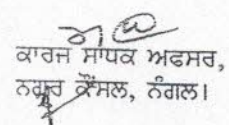 ਕਾਰਜ ਸਾਧਕ ਅਫਸਰ,
ਨਗਰ ਕੌਂਸਲ, ਨੰਗਲ।